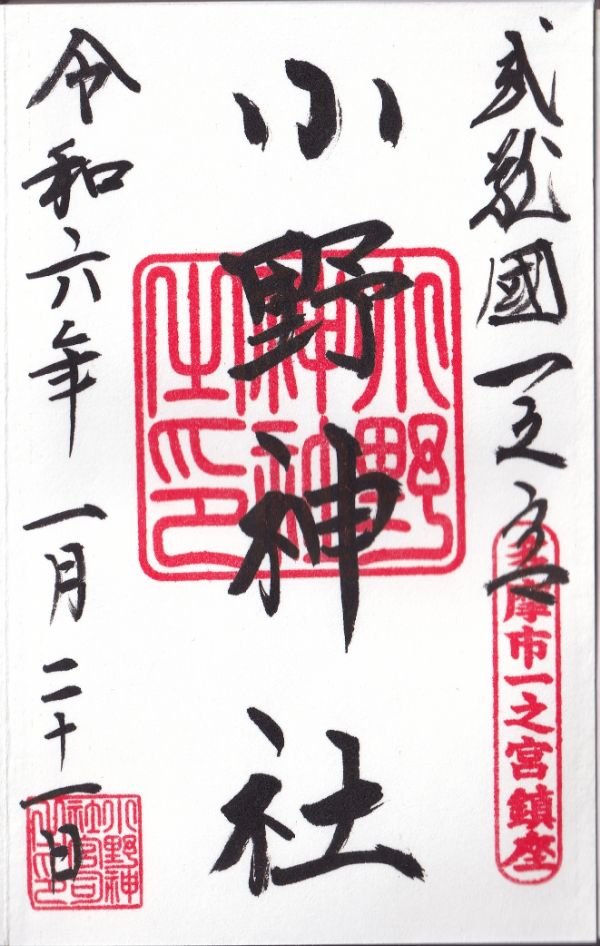 武蔵國一之宮
多摩市一之宮鎮座
小野神社
小野神社之印
令和六年一月二十一日
小野神社宮司之印